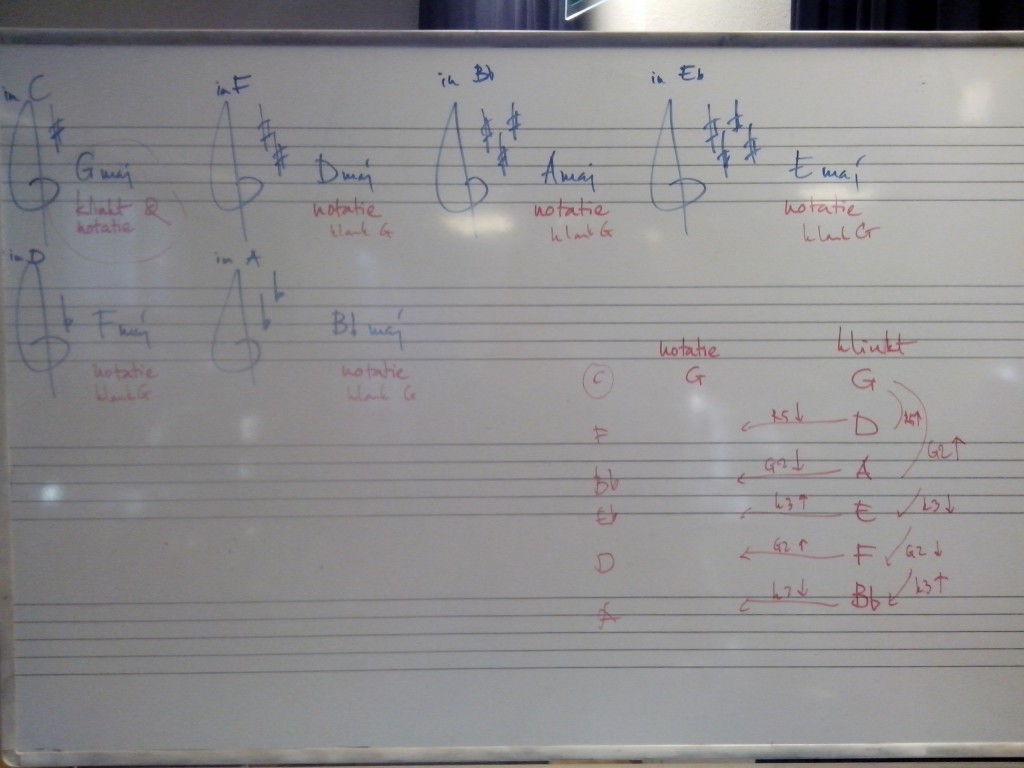 in C
in F
in Bb
in Eb
G maj
D maj
A maj
E maj
klinkt &
notatie
notatie
klank G
notatie
klank G
notatie
klank G
in D
in A
F maj
Bb maj
notatie
klank G
notatie
klank G
notatie klinkt
C G G
F R5↓ D R5↑
Bb G2↓ A G2↑
Eb k3↑ E k3↓
D G2↑ F G2↓
A k3↓ Bb k3↑